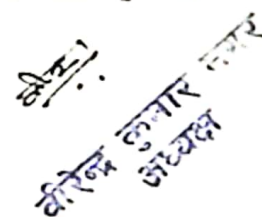 वीरेन्द्र कुमार नागर
अध्यक्ष